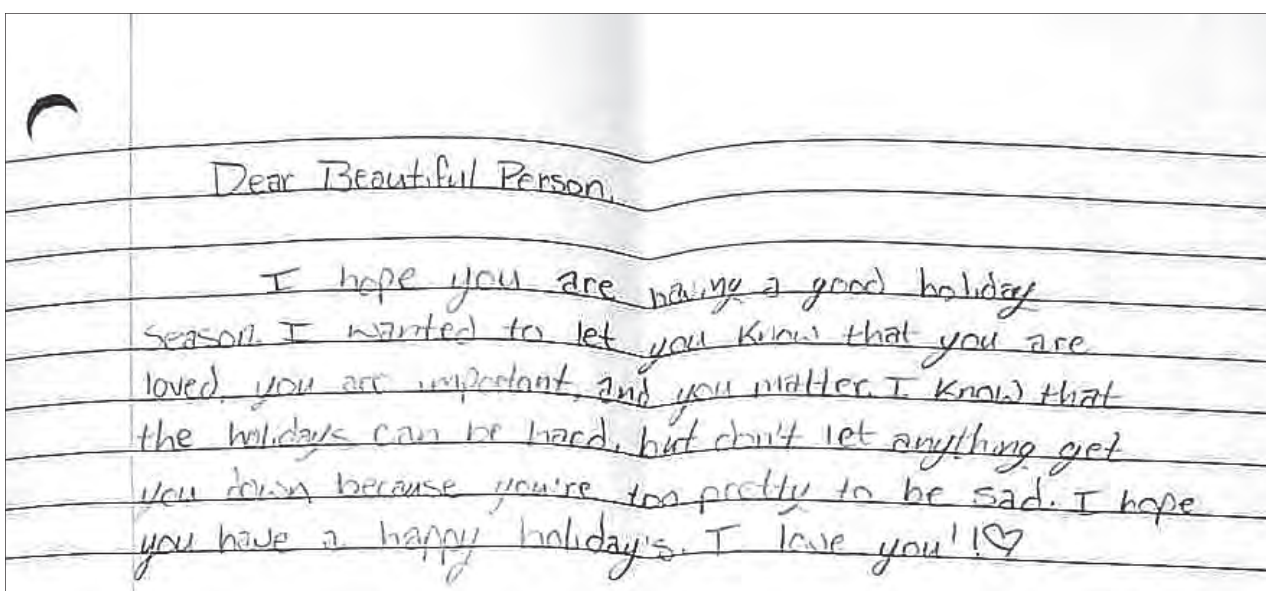 Dear Beautiful Person,
I hope you are having a good holiday
season. I wanted to let you know that you are
loved, you are important, and you matter. I know that
the holidays can be hard, but don't let anything get
you down because you're too pretty to be sad. I hope
you have a happy holiday's. I love you!!♡